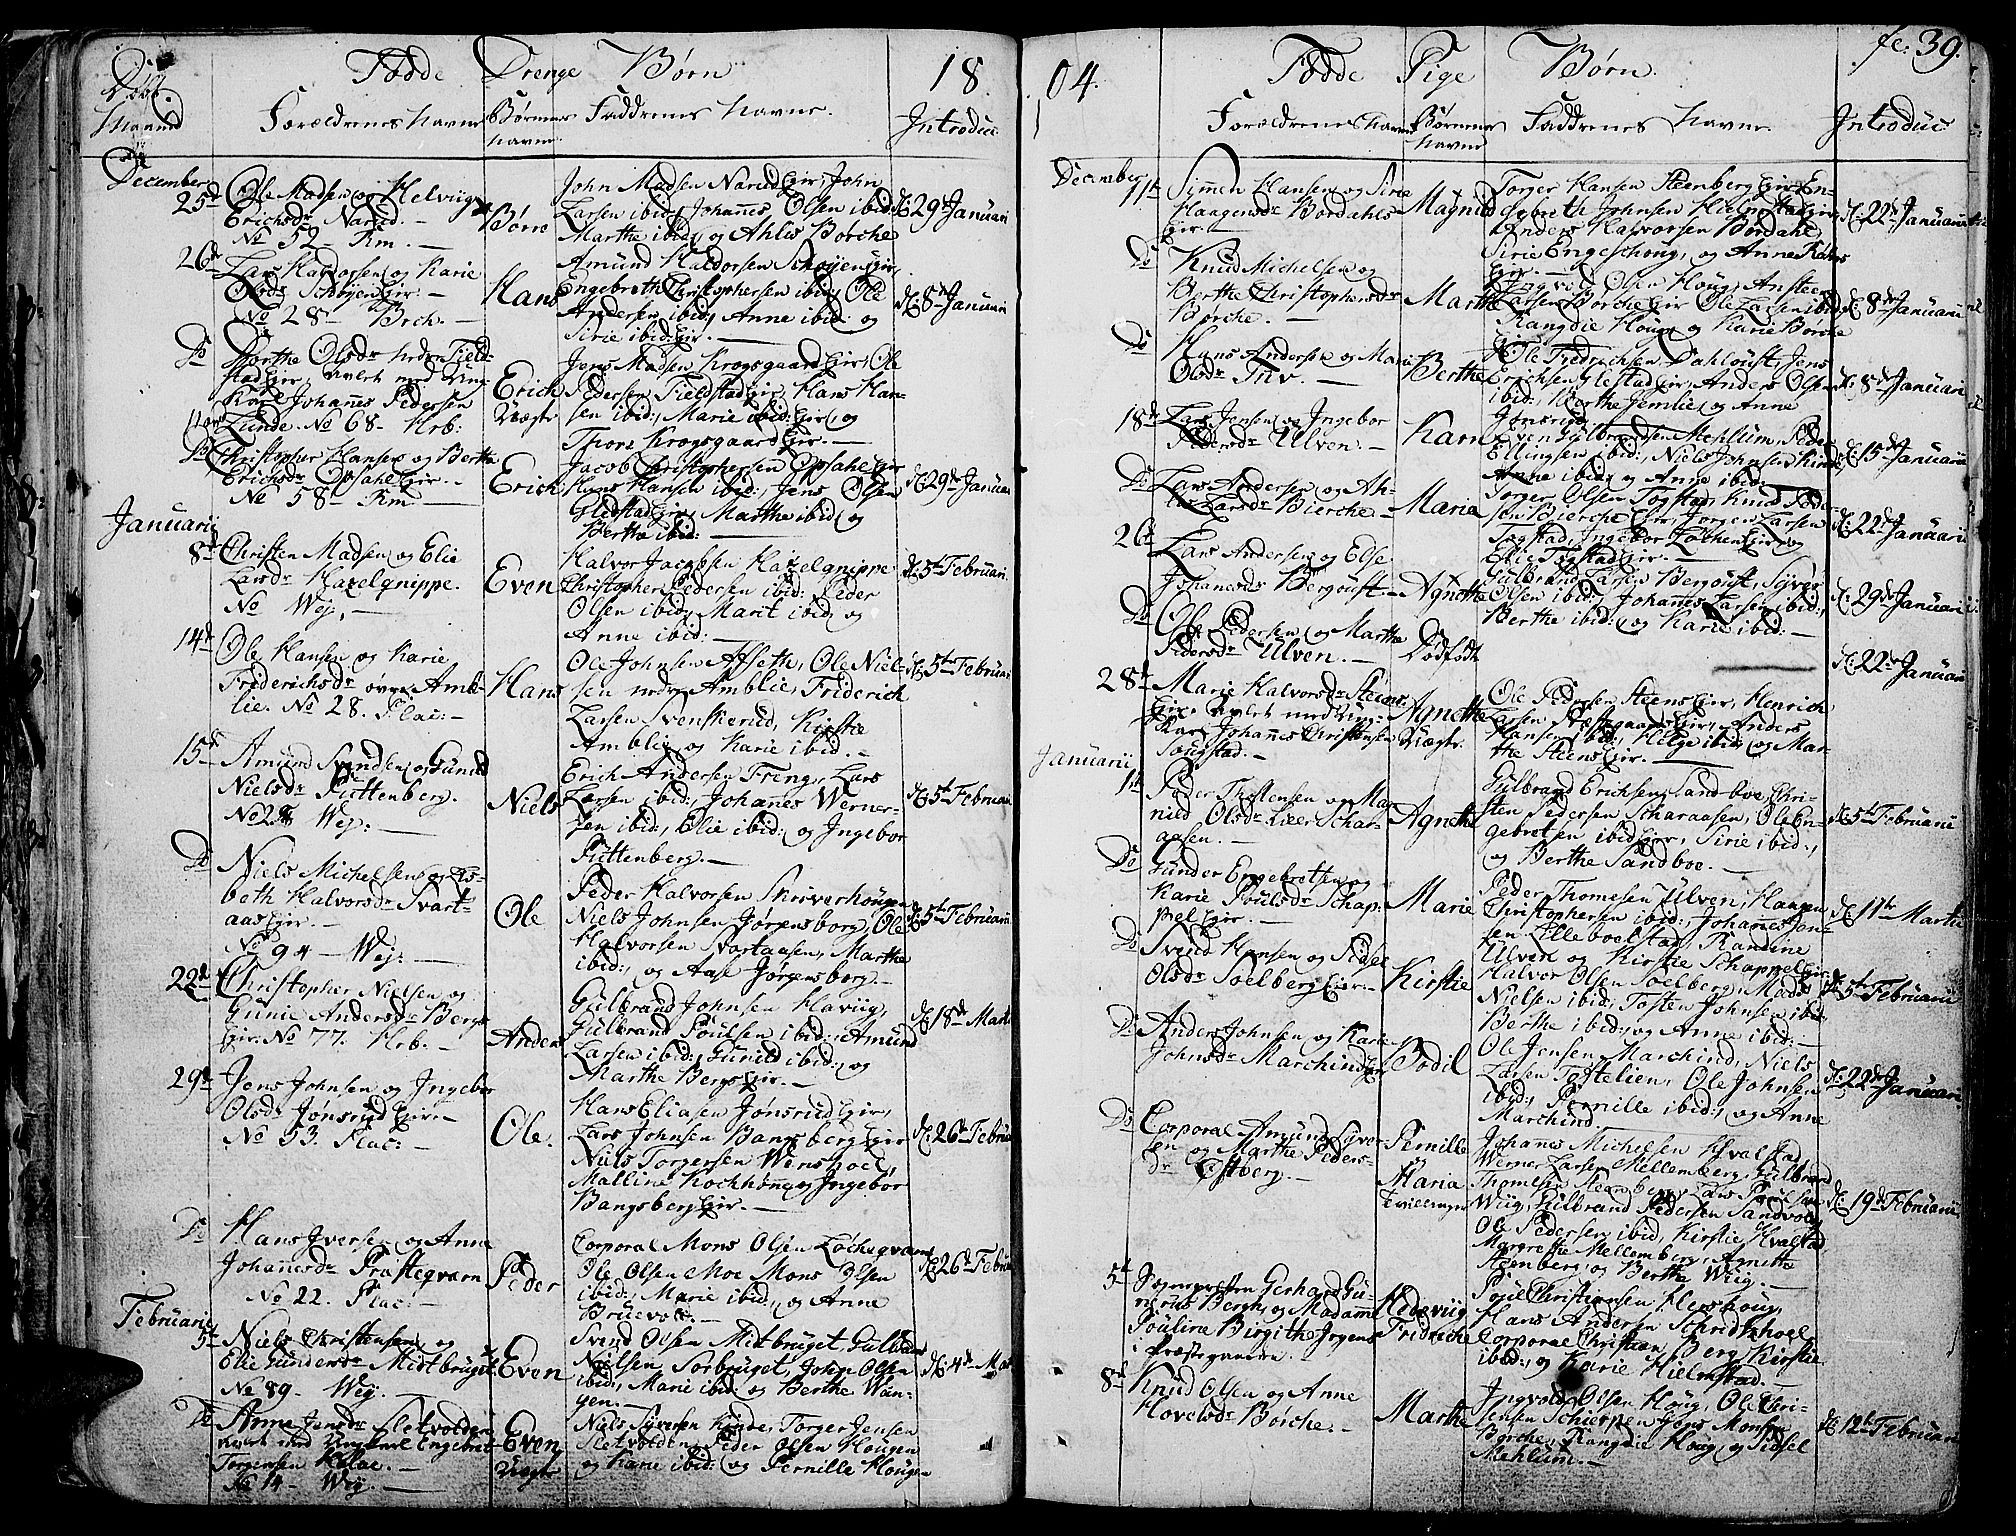 Fødde Drenge Børn 18
Forældrenes Navne
Børnenes Navne
Faddernes Navne.
Introduc.
December
25de
Ole Madsen og Helvig
Erichsdr Narud.
No 52 Rm.
Børre
John Madsen Narud Eir, John
Larsen ibid, Johannes Olsen ibid:
Marthe ibid; og Ahlis Børche
d: 29de Januari
26de
Lars Haldorsen og Karie
Olsdr Schøyen Eir.
No 28 Brch.
Hans
Amund Haldorsen Schøyens Eir,
Engebreth Christophersen ibid; Ole
Andersen ibid; Anne ibid: og
Sirie ibid: Eir.
d: 8de Januari
Do
Dorthe Olsdr nedre Field-
stad Eir, avlet med Ung-
Karl Johannes Pedersen
Lunde. No 68 Hrb:
Erich
Uægte
Jens Madsen Krogsgaard Eir, Ole
Pedersen Fieldstad Eir, Hans Han-
sen ibid:, Marie ibid: Eir, og
Thore Krogsgaard Eir.
Do
Christopher Hansen og Berthe
Erichsdr Opsahl Eir.
No 58 Rm
Erich
Jacob Christophersen Opsahl Eir
Hans Hansen ibid:, Jens Olsen
Gledstad Eir, Marthe ibid; og
Berthe ibid:
d: 29de Januari
Januarii
8de
Christen Madsen og Elie
Larsdr Haxelgnippe.
No Wej,
Even
Halvor Jacobsen Haxelgnippe
Christopher Pedersen ibid: Peder
Olsen ibid; Marit ibid; og
Anne ibid:
d: 5te Februari.
14de
Ole Hansen og Karie
Friderichsdr øvre Amb-
lie. No 28. Plac:
Hans
Ole Johnsen Afseth, Ole Niel-
sen nedre Amblie, Friderich
Larsen Svenskerud, Kirstie
Amblie og Karie ibid.
d: 5te Februari
15de
Amund Svendsen og Gunild
Nielsdr Puttenberg.
No 28 Wej:
Niels
Erich Andersen Freng, Lars
Larsen ibid:, Johannes Werner-
sen ibid:, Elie ibid: og Ingebor
Puttenberg.
d: 5te Februari
Do
Niels Michelsen og Lis-
beth Halvorsdr Svart-
aas Eir.
No 94 Wej:
Ole
Peder Halvorsen Skriverhougen
Niels Johnsen Jørgensborg, Ole
Halvorsen Svartaasen, Marthe
ibid:, og Aase Jørgensborg.
d: 5te Februarii
22de
Christopher Nielsen og
Gunie Andersdr Bergs
Eir. No 77. Hrb.
Anders
Gulbrand Johnsen Haviig,
Gulbrand Poulsen ibid:, Amund
Larsen ibid: Gunild ibid: og
Marthe Bergs Eir.
d: 18de Marti
29de
Jens Johnsen og Ingebor
Olsdr Jønsrud Eir.
No 53. Plac:
Ole.
Hans Eliasen Jønsrud Eir,
Lars Johnsen Bangsberg Eir
Niels Torgersen Wemshoel,
Malline Kochhonn og Ingebor
Bangsberg Eir.
d: 26de Februa
Do
Hans Iversen og Anne
Johannesdr Prøstegvarn
No 22. Plac:
Peder
Corporal Mons Olsen Løchegvarns
Ole Olsen Moe Mons Olsen
ibid:, Marie ibid:, og Anne
Bruevold.
d: 26de Februa
Februarii
5te
Niels Christensen og
Elie Gundersdr Midtbruget
No 89. Wej.
Even
Svend Olsen Mitbruget Gulbrand
Nielsen Sorbruget, John Olsen
ibid; Marie ibid: og Berthe Wan-
gen.
d: 4de Mar
Do
Anne Jensdr Sletvolden
avlet med Ungkarl Engebret
Torgersen Kalae.
No 14 Wej.
Even
Uægte
Niels Syversen Kinde, Torger Jensen
Sletvolden, Peder Olsen Hougen
og Karie ibid: og Pernille Hougen
04.
Fødde Pige Børn.
fe: 39.
Forældrenes Navne
Børnenes Navne
Faddrenes Navne.
Introduc
December
11te
Simen Hansen og Sirie
Haagensdr Bordahls
Eir.
Magnild
Torger Hansen Steenberg Eir, En-
gebreth Johnsen Hielmstad Eir,
Anders Halvorsen Bordahl
Sirie Engeshoug, og Anne Røhns
Eir.
d: 22de Januarii
Do
Knud Michelsen og
Berthe Christophersdr
Børche.
Marthe
Ingvold Olsen Houg, Ansteen
Larsen Børche Eir, Ole Larsen ibid
Rangdie Houg og Karie Børche
Eir.
d: 8de Januarii
Do
Hans Andersen og Marie
Olsdr Tnv.
Berthe
Ole Fredrichsen Dahloust, Jens
Erichsen Glestad Eir, Anders Olsen
ibid:, Berthe Jemlie, og Anne
Jønsrud.
d: 8de Januari
18de
Lars Jensen og Ingebor
Pedersdr Ulven.
Karn
Even Gulbrandsen Mehlum, Peder
Ellingsen ibid:, Niels Johnsen Kinde,
Anne ibid: og Anne ibid:
d: 15de Januari
Do
Lars Andersen og Ah-
lis Larsdr Bierche
Maria
Torger Olsen Togstad, Knud Peder-
sen Bierche Eir, Jørgen Larsen
Togstad, Ingebor Løchen Eir og
Elie Togstad Eir.
d: 22de Januari
26de
Lars Andersen og Else
Johannesdr Bergoust
Agnethe
Gulbrand Larsen Bergoust, Syver
Olsen ibid; Johannes Larsen ibid:,
Berthe ibid: og Karie ibid:
d: 29de Januarii
Do
Ole Pedersen og Marthe
Pedersdr Ulven.
Dødfødt
d: 22de Januari
28de
Marie Halvorsdr Steens
Eir, avlet med Ung-
Karl Johannes Christensen
Sougstad.
Agnethe
Uægte.
Ole Pedersen Steens Eir, Henrich
Larsen Næstegaard Eir, Anders
Hansen ibid:, Helge ibid: og Mar-
the Steens Eir.
Januarii
1te
Peder Thostensen og Mag-
nild Olsdr Schar-
aasen.
Agnethe
Gulbrand Erichsen Sandboe Chri-
sten Pedersen Scharaasen, Ole En-
gebretsen ibid: Eir, Sirie ibid:,
og Berthe Sandboe.
d: 5te Februarii
Do
Gunder Engebretsen og
Karie Poulsdr Schap-
pel Eir.
Marie
Peder Thomesen Ulven, Haagen
Christophersen ibid:, Johannes Jen-
sen Lilleboelstad, Randine
Ulven og Kirstie Schappel Eir.
d: 11te Martii
Do
Svend Hansen og Sidse
Olsdr Soelberg Eir.
Kirstie
Halvor Olsen Soelberg, Mads
Nielsen ibid:, Tosten Johnsen ibid,
Berthe ibid: og Anne ibid:
d: 5te Februarii
Do
Anders Johnsen og Karie
Johnsdr Marchind Eir
Bodil
Ole Jensen Marchind, Niels
Larsen Tostelien, Ole Johnsen
ibid:, Pernille ibid:, og Anne
Marchind.
d: 22de Januari
Do
Corporal Amund Syver-
sen og Marthe Peders-
dr Østberg.
Pernille
Maria
Tvillinger
Johannes Michelsen Hvalstad,
Werner Larsen Mellemberg, Gulbrand
Thomesen Steenberg, Lars Poulsen
Wiig, Gulbrand Pedersen Sandvold,
Ole Pedersen ibid, Kirstie Hvalstad
Margrethe Mellemberg, Anette
Steenberg, og Berthe Wiig.
d: 19de Februarii
5te
Sognepresten Gerhard Gu-
nerus Bergh, og Madame
Pouline Birgithe Jørgens
i Præstegaarden.
Hedeviig
Fridriche
Poul Christiansen Hershoug,
Hans Andersen Schredshoel
Corporal Christian Berg, Kirstie
ibid:, og Karie Hielmstad.
8de
Knud Olsen og Anne
Hovelsdr Børche.
Marthe
Ingvold Olsen Houg, Ole Chri-
stensen Schierpen, Jøns Monsen
Børche, Rangdie Houg, og Sidsel
Mehlum.
d: 12te Februarii